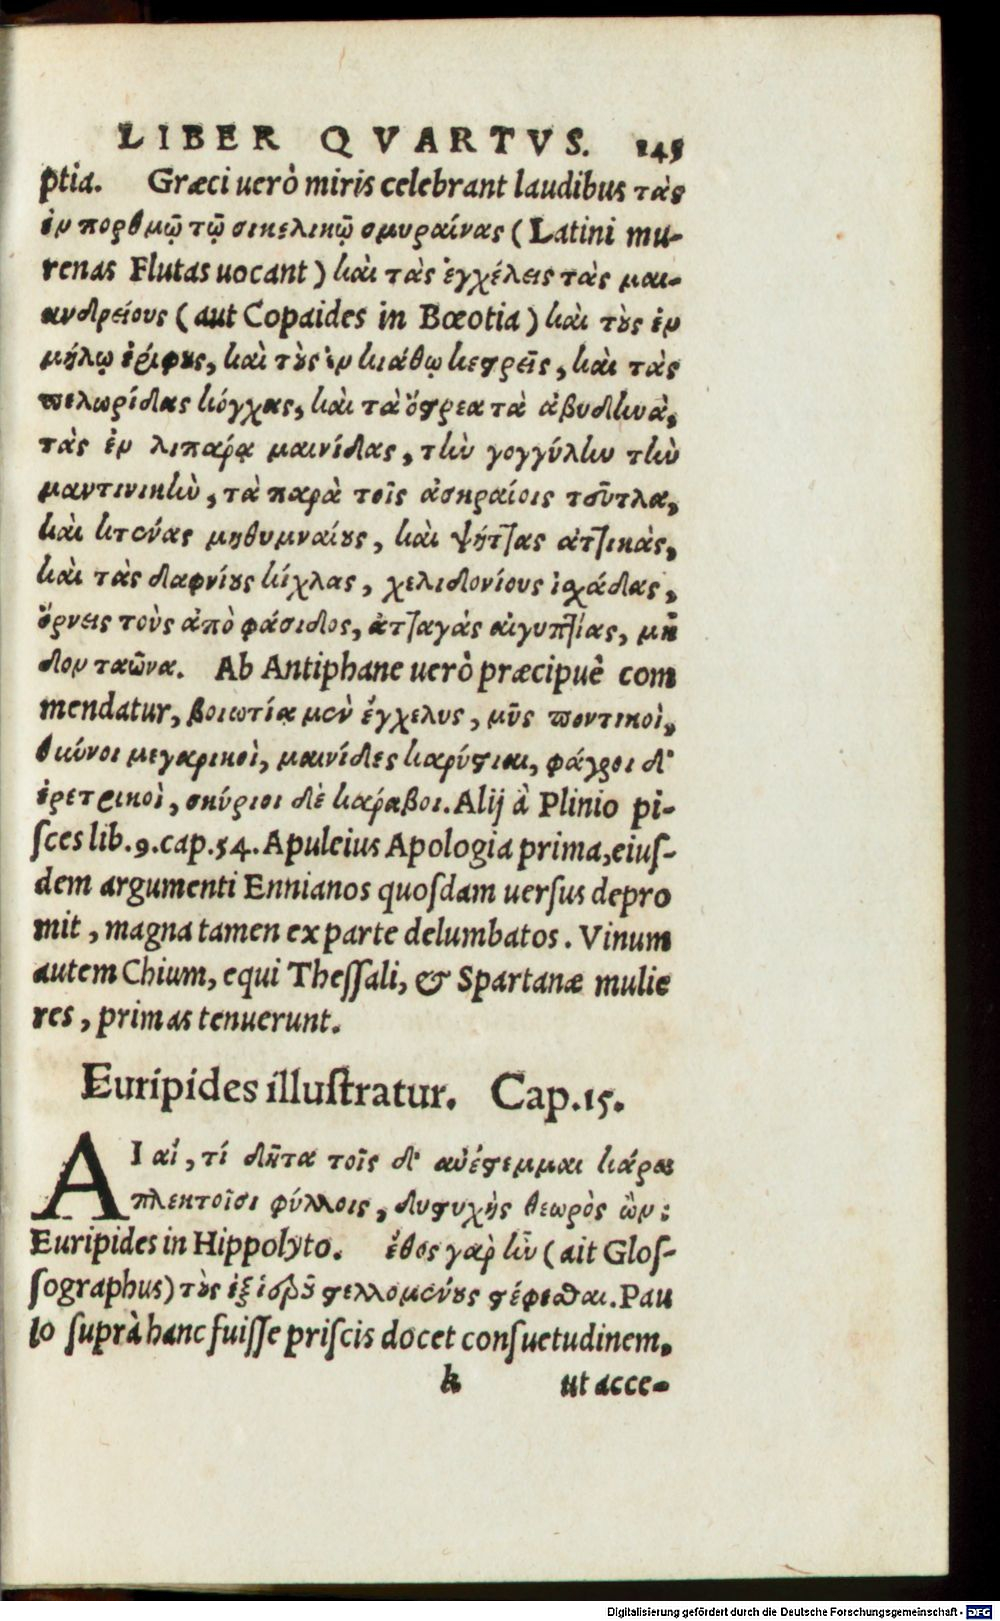 LIBER QVARTVS. 145
ptia. Græci uerò miris celebrant laudibus τὰς
ἐν πορθμῷ τῷ σικελικῷ σμυραίνας (Latini mu-
renas Flutas uocant) καὶ τὰς ἐγχέλεις τὰς μαι-
ανδρείους (aut Copaides in Bœotia) καὶ τοὺς ἐν
μήλῳ ἐρίφους, καὶ τοὺς ἐν κιάθῳ κεστρεῖς, καὶ τὰς
πελωρίδας κόγχας, καὶ τὰ ὄστρεα τὰ ἀβυδηνὰ,
τὰς ἐν λιπαρᾳ μαινίδας, τὴν γογγύλην τὴν
μαντινικὴν, τὰ παρὰ τοῖς ἀσκραίοις τεῦτλα,
καὶ κτένας μηθυμναίους, καὶ ψήττας ἀττικὰς,
καὶ τὰς δαφνίους κίχλας, χελιδονίους ἰσχάδας,
ὄρνεις τοὺς ἀπὸ φάσιδος, ἀτταγὰς αἰγυπτίας, μῆ
δον ταῶνα. Ab Antiphane uerò præcipuè com
mendatur, βοιωτίᾳ μὲν ἔγχελυς, μῦς ποντικοὶ,
θκύνοι μεγαρικοὶ, μαινίδες καρύστιαι, φάγροι δ'
ἐρετρικοὶ, σκύριοι δὲ κάραβοι. Alij à Plinio pi-
ſces lib.9.cap.54. Apuleius Apologia prima, eiuſ-
dem argumenti Ennianos quoſdam uerſus depro
mit, magna tamen ex parte delumbatos. Vinum
autem Chium, equi Theſſali, & Spartanæ mulie
res, primas tenuerunt.
Euripides illuſtratur. Cap.15.
AI αἲ, τί δῆτα τοῖς δ' ἀνέστεμμαι κάρα
πλεκτοῖσι φύλλοις, δυστυχὴς θεωρὸς ὢν:
Euripides in Hippolyto. ἔθος γὰρ ἦν (ait Gloſ-
ſographus) τοὺς ἐξ ἱεροῦ στελλομένους στέφεσθαι. Pau
lo ſuprà hanc fuiſſe priſcis docet conſuetudinem,
k ut acce-
Digitalisierung gefördert durch die Deutsche Forschungsgemeinschaft - DFG